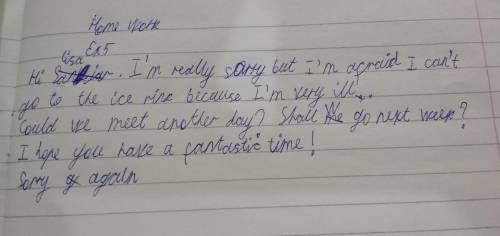 Home work
Ex5
Hi Lisa. I'm really sorry but I'm afraid I can't
go to the ice rink because I'm very ill.
Could we meet another day? Shall we go next week?
I hope you have a fantastic time!
Sorry again